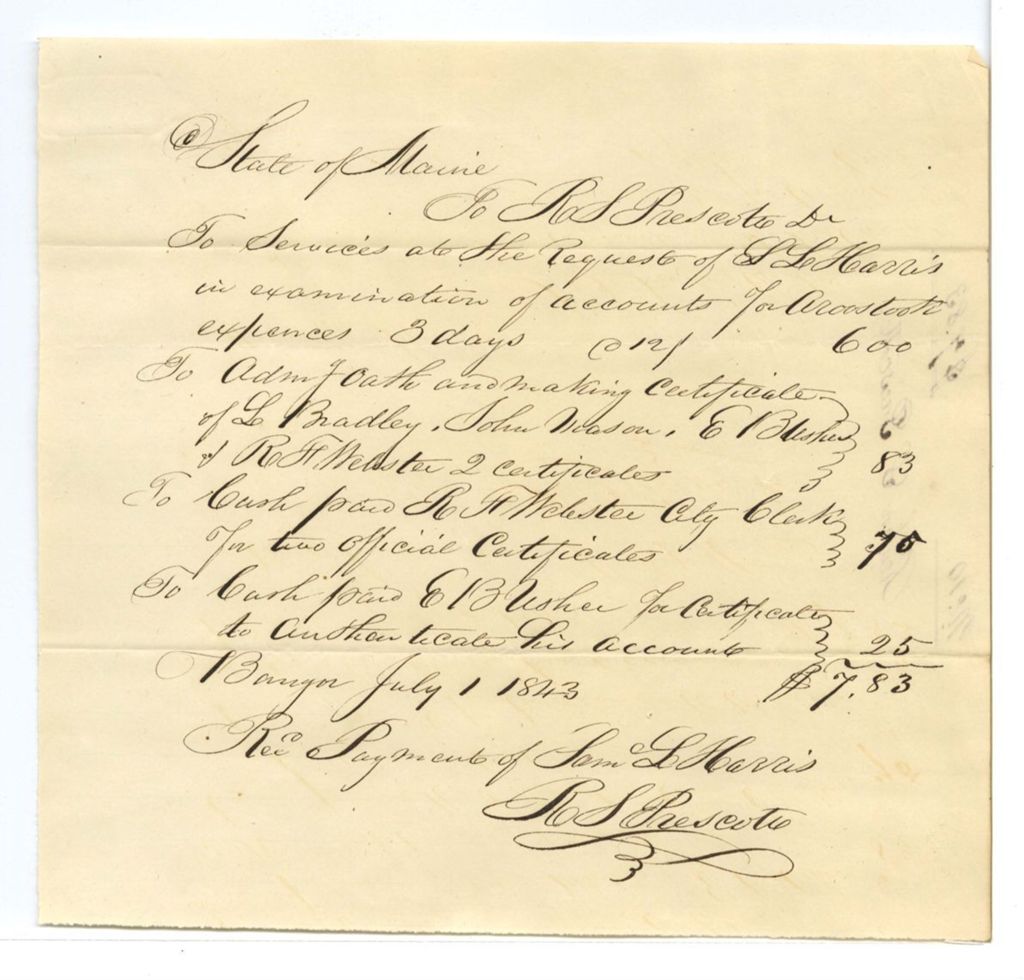 State of Maine
To R S Prescott Dr
To Services at the Request of S L Harris
in examination of accounts for Aroostook
expences 3 days @ 12/ 6 00
To Admg Oath and making Certificate
of L Bradley, John Wason, E B Usher
& R F Webster 2 certificates 83
To Cash paid R F Webster City Clerk
for two Official Certificates 75
To Cash paid E B Usher for Certificate
to Authenticate his accounts 25
Bangor July 1 1843 $ 7.83
Recd Payment of Saml L Harris
R S Prescott